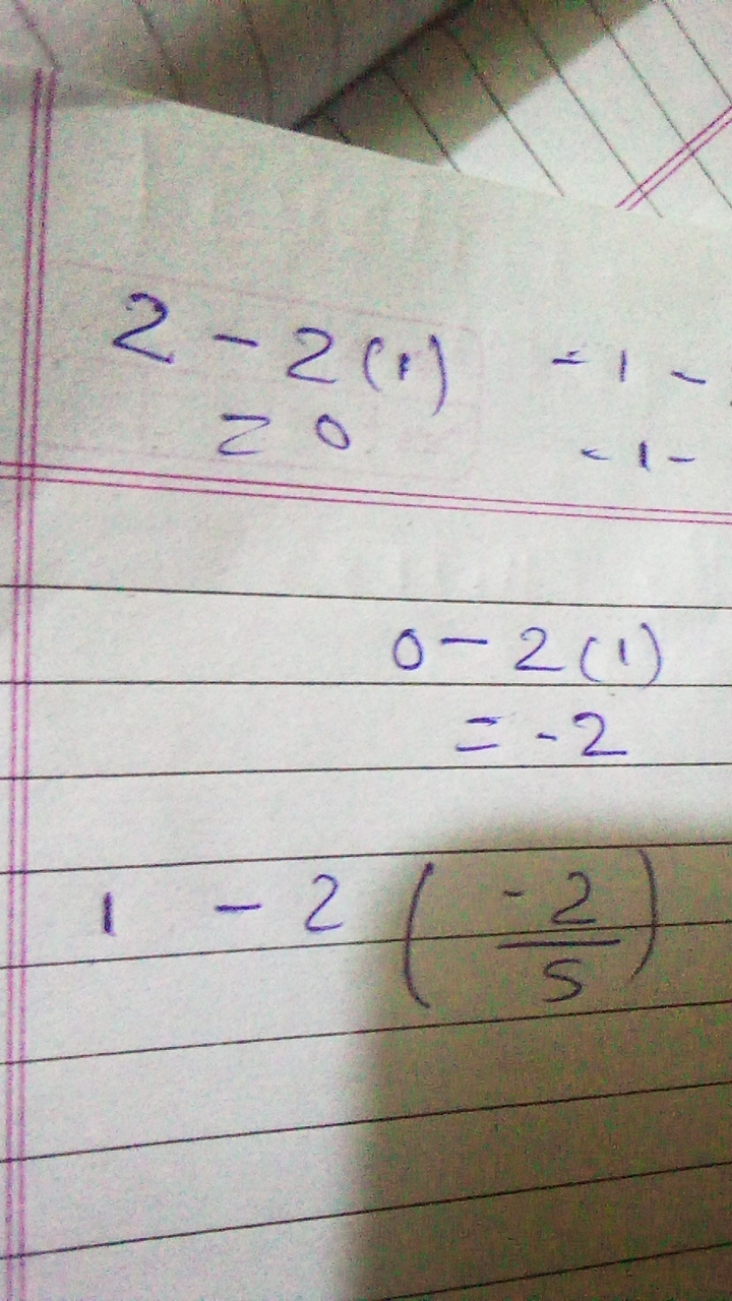 2 - 2(1) - 1 -
= 0 - 1 -
0 - 2(1)
= -2
1 - 2 (-2/5)